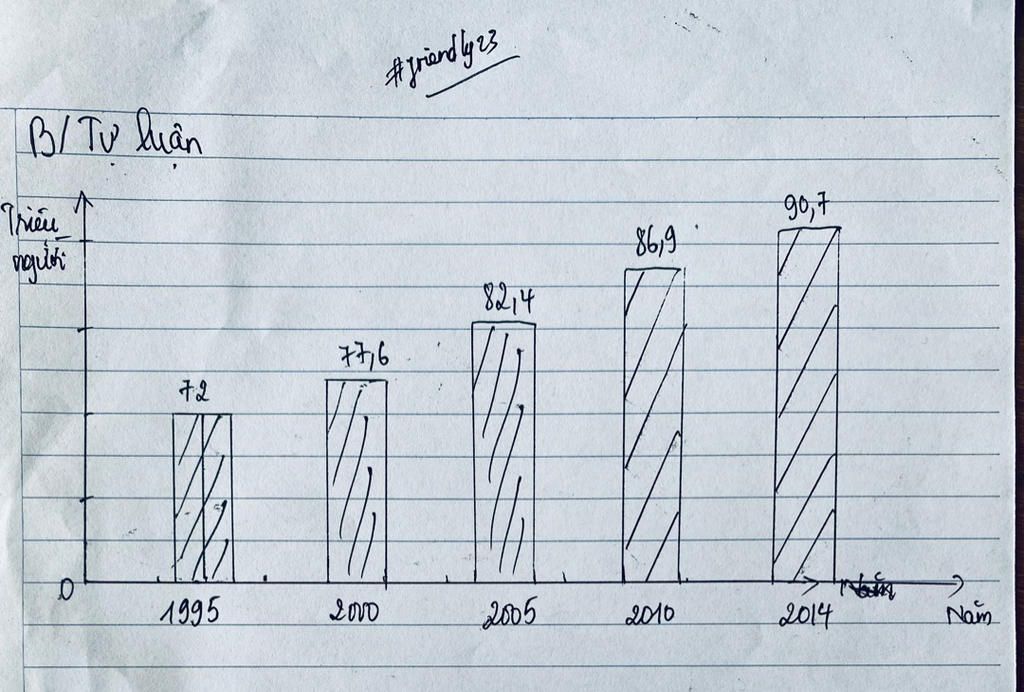 #friendly23
B/ Tự luận
Triệu
người
90,7
86,9
82,4
77,6
72
0
1995 2000 2005 2010 2014
Năm